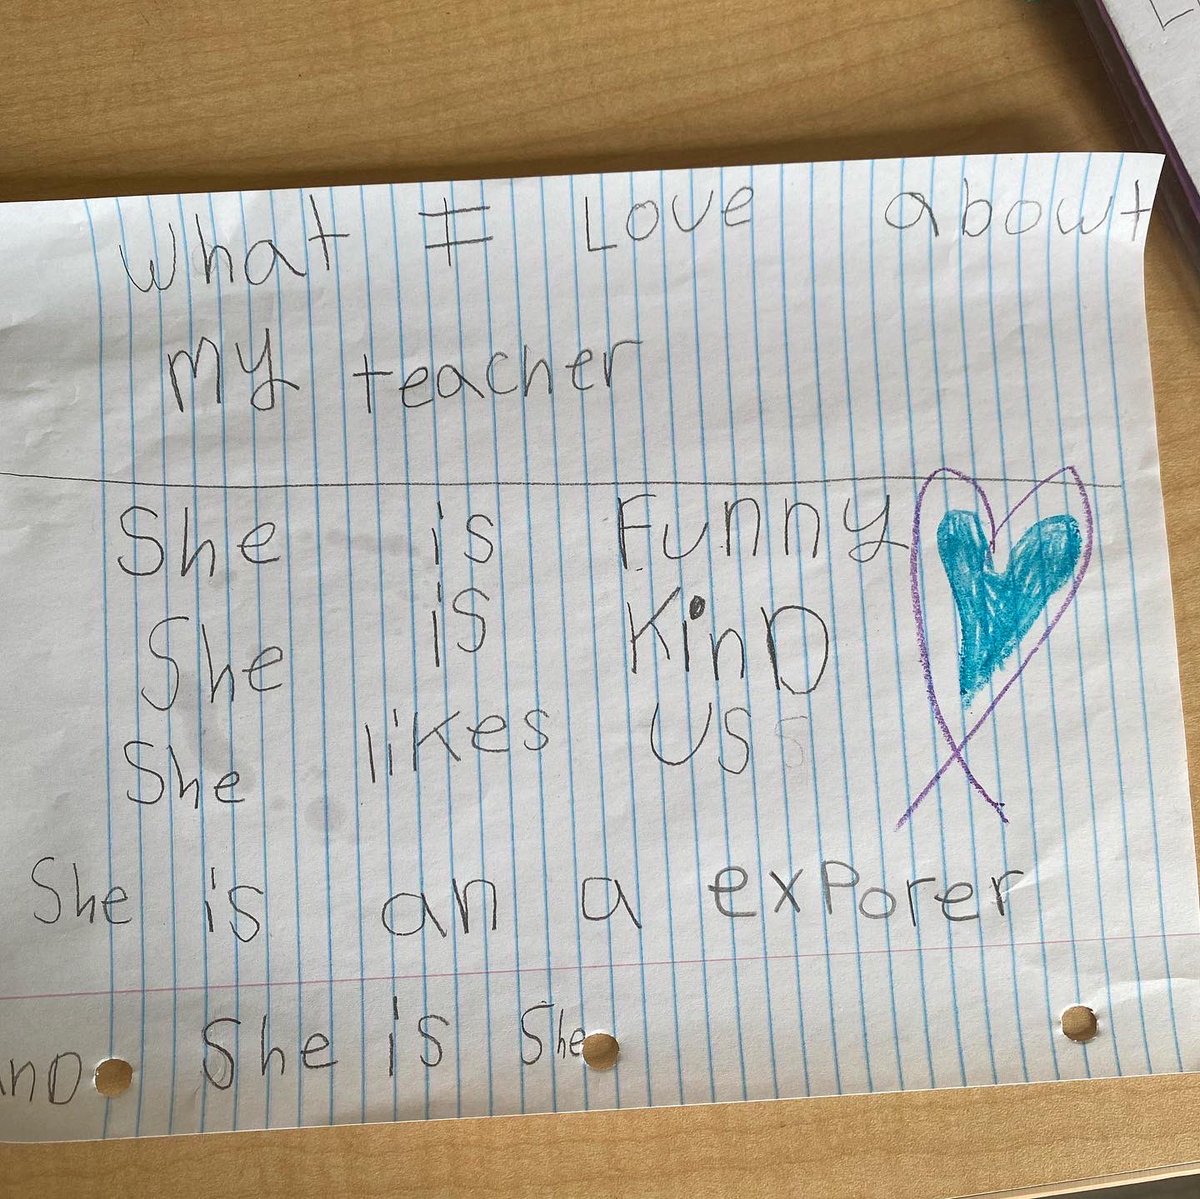 What I Love abowt
my teacher
She is Funny
She is KinD
She likes US
She is an a exPorer
anD She is She